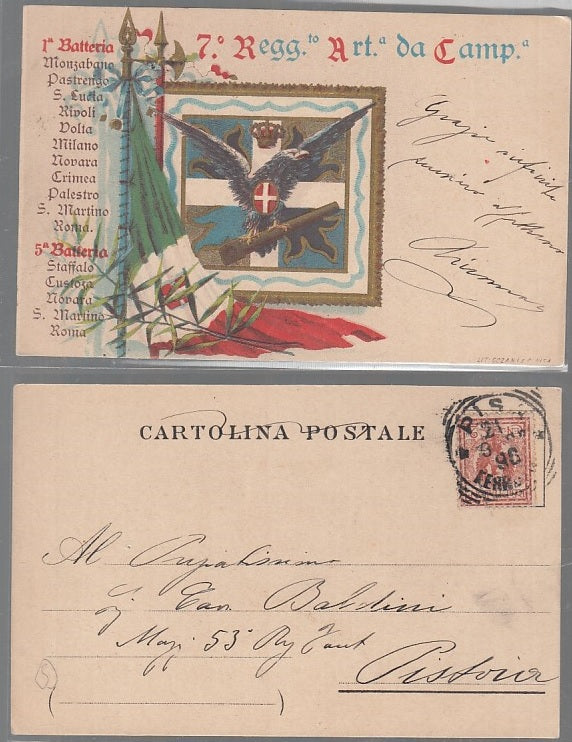 7.° Regg.to Art.a da Camp.a
1a Batteria
Monzabano
Pastrengo
S. Lucia
Rivoli
Volta
Milano
Novara
Crimea
Palestro
S. Martino
Roma.
5a Batteria
Staffalo
Custoza
Novara
S. Martino
Roma
Grazie infinite
CARTOLINA POSTALE
PISA
21
8
96
FERR
Al Pregiatissimo
Sig Cav. Baldini
Magg. 53° Reg Fant
Pistoia
5